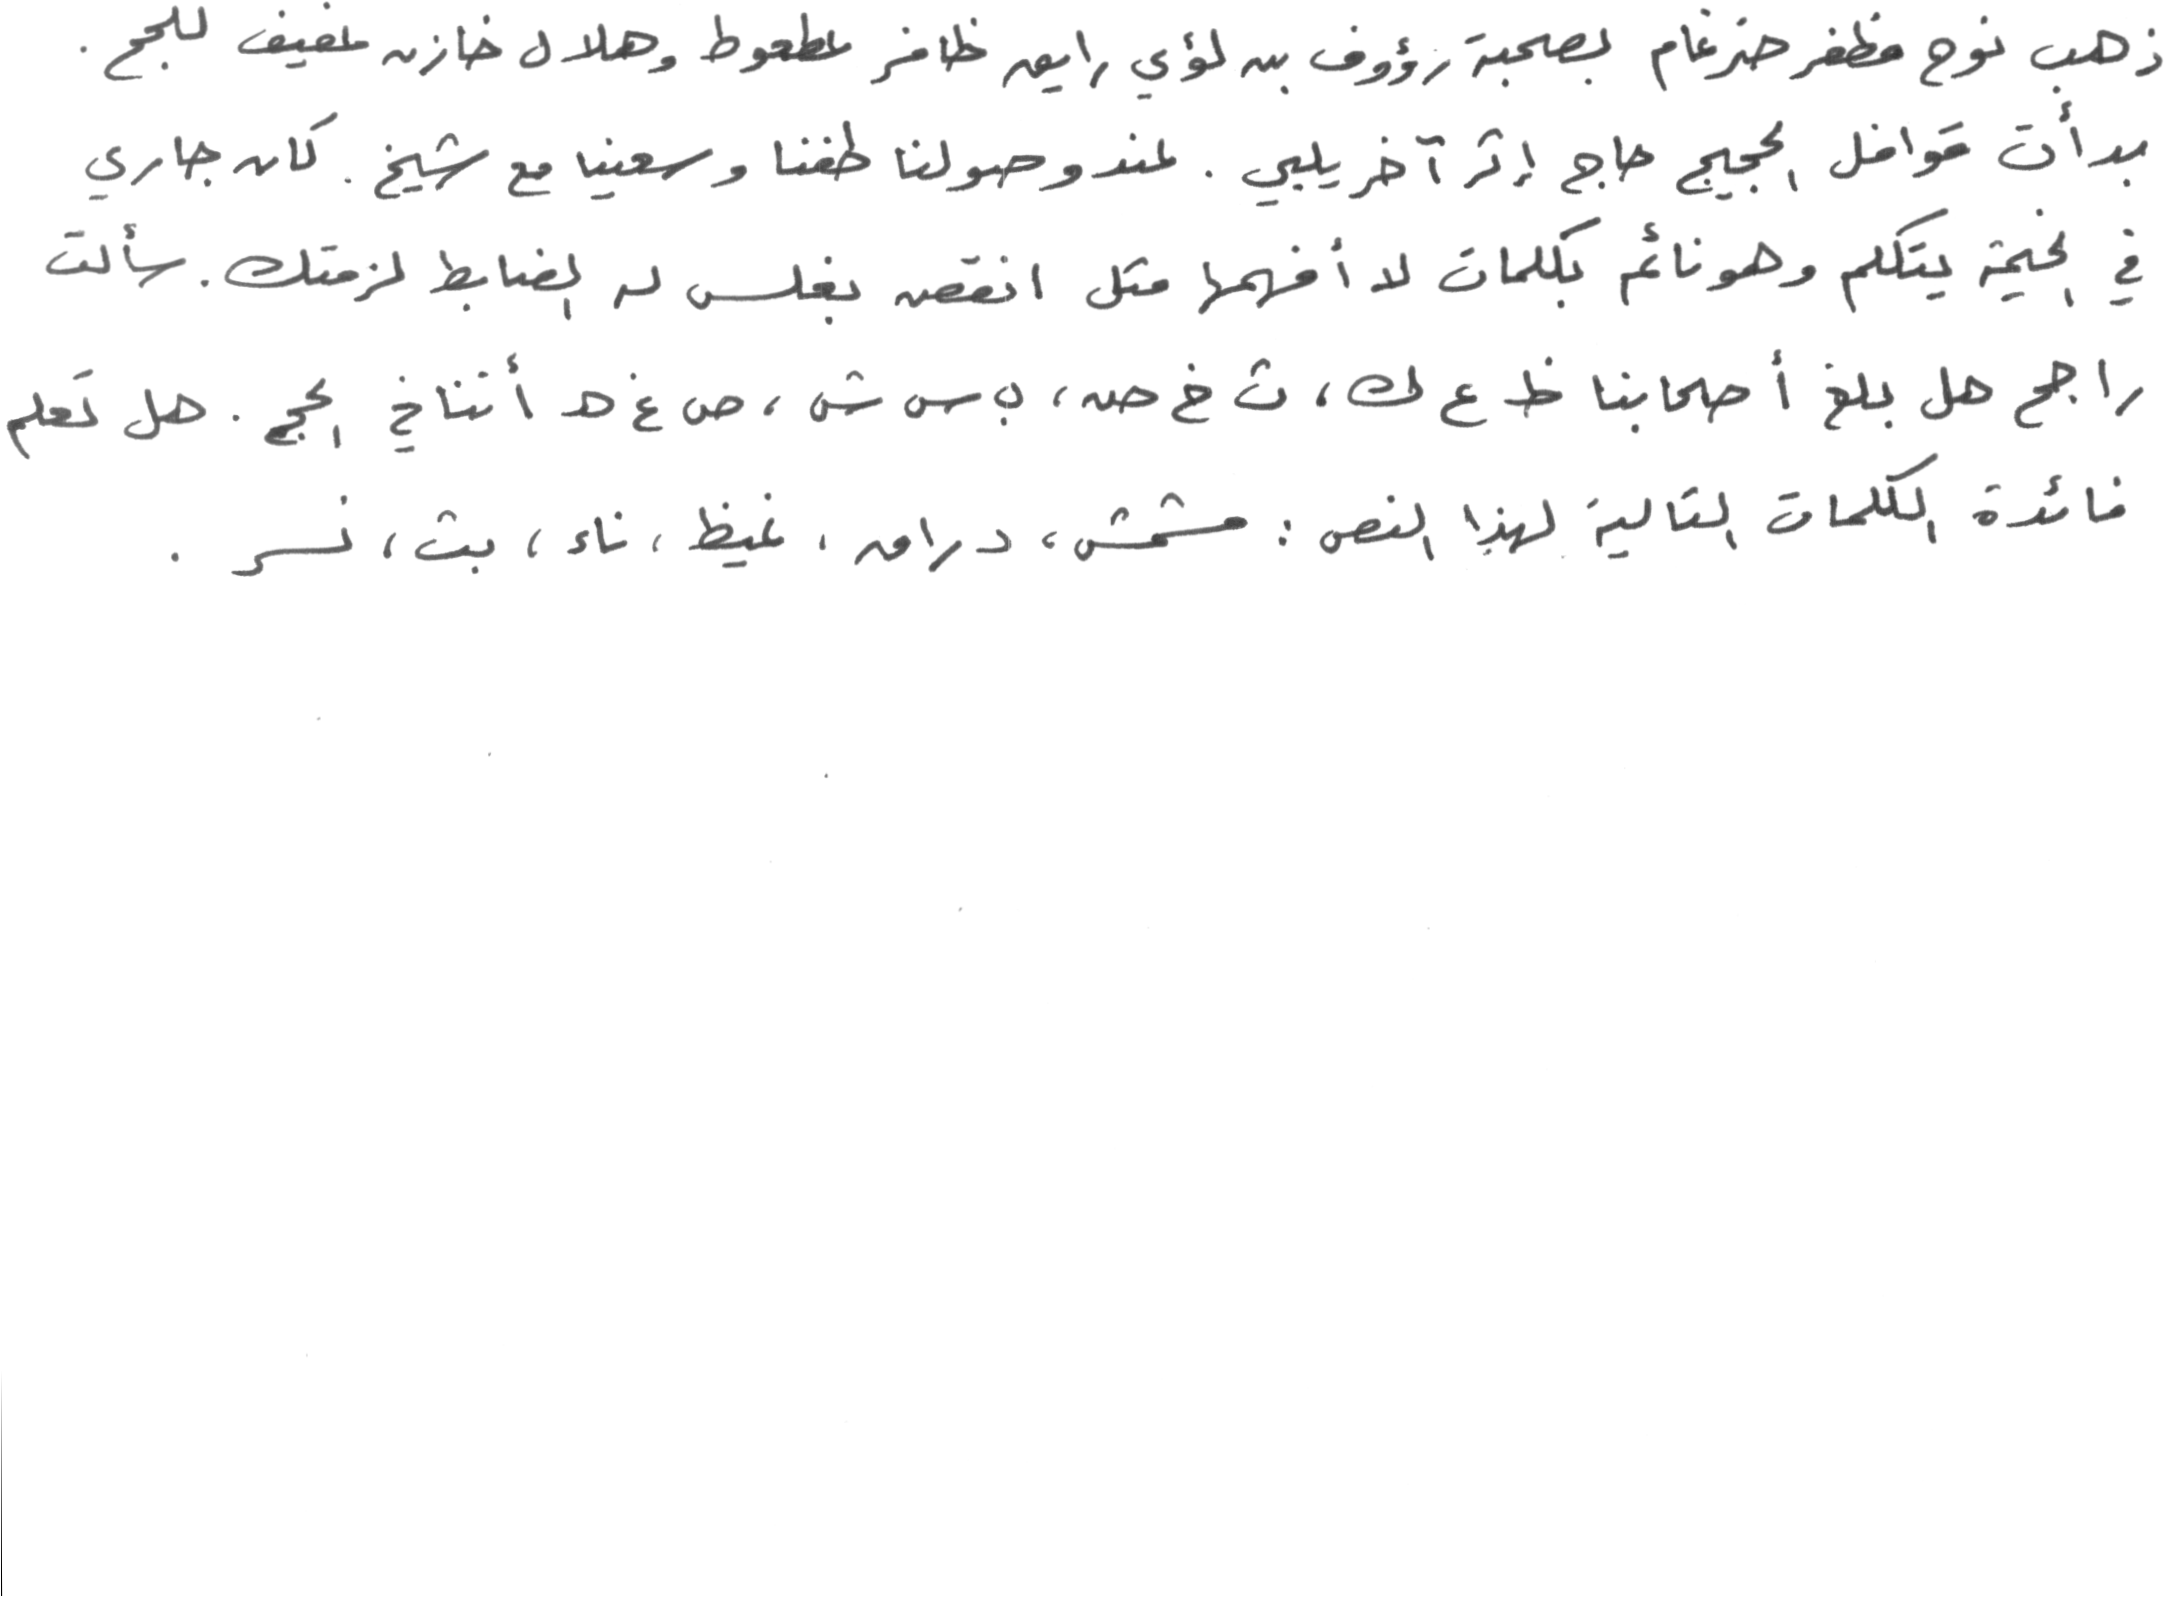 ذهب نوح مظفر ضرغام بصحبة رؤوف بن لؤي رايق ظافر عطعوط وهلال خازن عفيف للحج .
بدأت قوافل الحجيج حاج إثر آخر يلبي . عند وصولنا طفنا وسعينا مع شيخ . كان جاري
في الخيمة يتكلم وهو نائم بكلمات لا أفهمها مثل انقض بغلس لن الضابط لزمتك . سألت
راجح هل بلغ أصحابنا ظ ع ك ، ث خ ض ، ب س ش ، ص غ ط أنتاخ الحج . هل تعلم
فائدة الكلمات التالية لهذا النص : مشمش ، درامق ، غيظ ، ناء ، بث ، نسر .